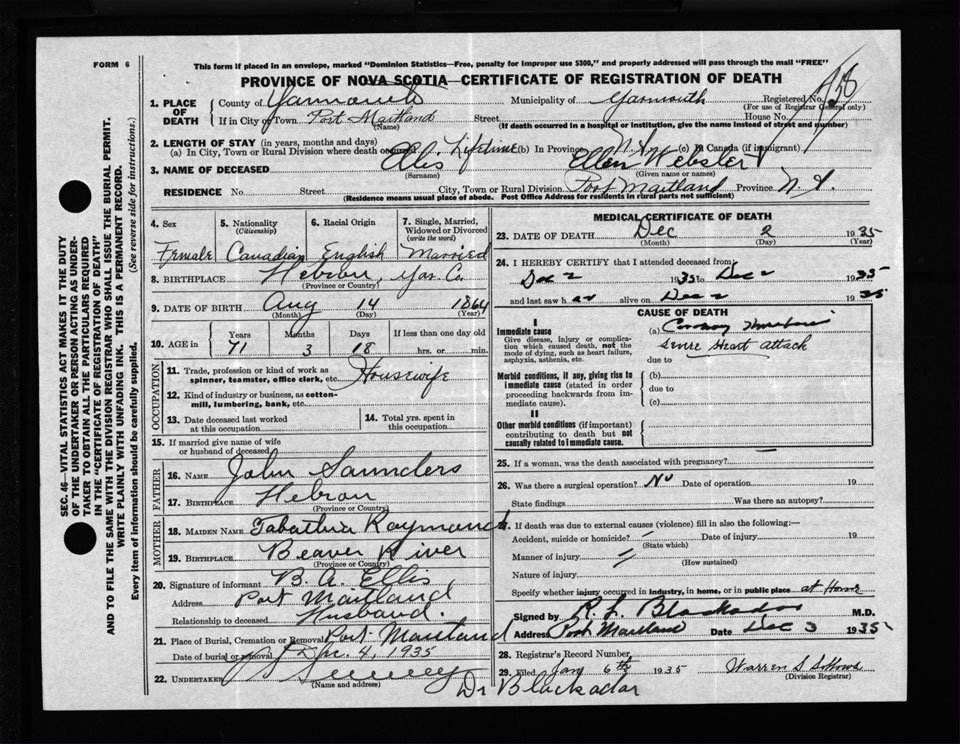 FORM 6
This form if placed in an envelope, marked "Dominion Statistics—Free, penalty for improper use $300," and properly addressed will pass through the mail "FREE"
PROVINCE OF NOVA SCOTIA—CERTIFICATE OF REGISTRATION OF DEATH
1. PLACE OF DEATH
County of Yarmouth Municipality of Yarmouth Registered No. 758
(For use of Registrar General only)
If in City or Town Port Maitland Street House No.
(Name) (If death occurred in a hospital or institution, give the name instead of street and number)
2. LENGTH OF STAY (in years, months and days)
(a) In City, Town or Rural Division where death occurred Lifetime (b) In Province (c) In Canada (if immigrant)
3. NAME OF DECEASED Ellis Ellen Webster
(Surname) (Given name or names)
RESIDENCE No. Street City, Town or Rural Division Port Maitland Province N.S.
(Residence means usual place of abode. Post Office Address for residents in rural parts not sufficient)
4. Sex 5. Nationality (Citizenship) 6. Racial Origin 7. Single, Married, Widowed or Divorced (write the word)
Female Canadian English Married
8. BIRTHPLACE Hebron, Yar. Co.
(Province or Country)
9. DATE OF BIRTH Aug 14 1864
(Month) (Day) (Year)
10. AGE in Years Months Days If less than one day old
71 3 18 hrs. or min.
OCCUPATION
11. Trade, profession or kind of work as spinner, teamster, office clerk, etc. Housewife
12. Kind of industry or business, as cotton-mill, lumbering, bank, etc.
13. Date deceased last worked at this occupation
14. Total yrs. spent in this occupation
15. If married give name of wife or husband of deceased
FATHER
16. NAME John Saunders
17. BIRTHPLACE Hebron
(Province or Country)
MOTHER
18. MAIDEN NAME Tabatha Raymond
19. BIRTHPLACE Beaver River
(Province or Country)
20. Signature of informant B. A. Ellis
Address Port Maitland
Relationship to deceased Husband.
21. Place of Burial, Cremation or Removal Port Maitland
Date of burial or removal Dec. 4, 1935
22. UNDERTAKER
(Name and address)
MEDICAL CERTIFICATE OF DEATH
23. DATE OF DEATH Dec 2 1935
(Month) (Day) (Year)
24. I HEREBY CERTIFY that I attended deceased from
Dec 2 1935 to Dec 2 1935
and last saw her alive on Dec 2 1935
CAUSE OF DEATH
I
Immediate cause (a) Coronary
Give disease, injury or complication which caused death, not the mode of dying, such as heart failure, asphyxia, asthenia, etc.
Severe Heart Attack
due to
Morbid conditions, if any, giving rise to immediate cause (stated in order proceeding backwards from immediate cause). (b)
due to
(c)
II
Other morbid conditions (if important) contributing to death but not causally related to immediate cause.
25. If a woman, was the death associated with pregnancy?
26. Was there a surgical operation? No Date of operation 19
State findings Was there an autopsy?
27. If death was due to external causes (violence) fill in also the following:—
Accident, suicide or homicide? Date of injury 19
(State which)
Manner of injury
(How sustained)
Nature of injury
Specify whether injury occurred in industry, in home, or in public place at Home
Signed by R. L. Blackadar M.D.
Address Port Maitland Date Dec 3 1935
28. Registrar's Record Number
29. Filed Jany 6th 1935 Warren S
(Division Registrar)
Dr Blackadar
SEC. 46—VITAL STATISTICS ACT MAKES IT THE DUTY
OF THE UNDERTAKER OR PERSON ACTING AS UNDER-
TAKER TO OBTAIN ALL THE PARTICULARS REQUIRED
IN THE "CERTIFICATE OF REGISTRATION OF DEATH"
AND TO FILE THE SAME WITH THE DIVISION REGISTRAR WHO SHALL ISSUE THE BURIAL PERMIT.
WRITE PLAINLY WITH UNFADING INK. THIS IS A PERMANENT RECORD.
Every item of information should be carefully supplied. (See reverse side for instructions.)